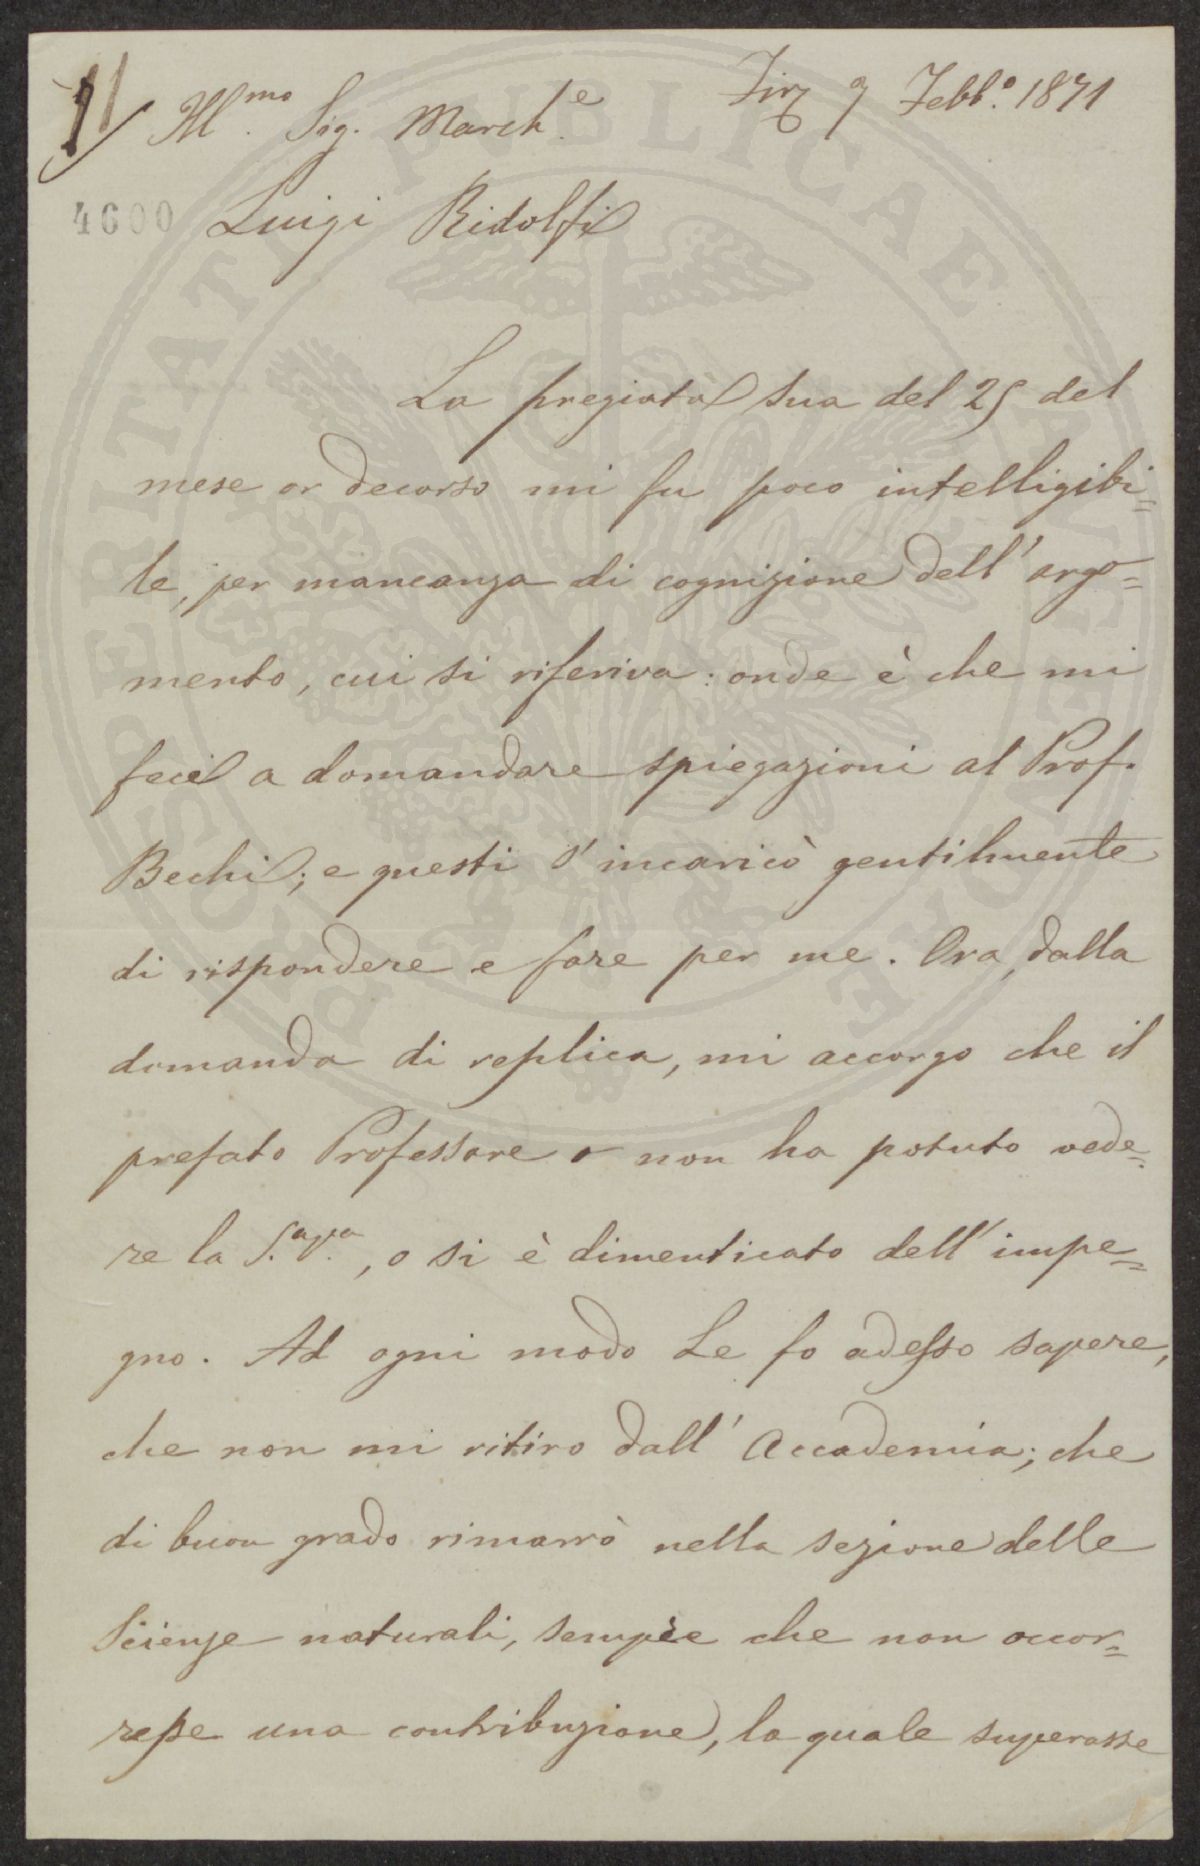 11
Ill.mo Sig. March.e
Fir.ze 9 Febb.o 1871
4600
Luigi Ridolfi
La pregiata sua del 25 del
mese or decorso mi fu poco intelligibi=
le, per mancanza di cognizione dell' argo=
mento, cui si riferiva: onde è che mi
feci a domandare spiegazioni al Prof.
Bechi; e questi s' incaricò gentilmente
di rispondere e fare per me. Ora, dalla
domanda di replica, mi accorgo che il
prefato Professore o non ha potuto vede=
re la S.a , o si è dimenticato dell' impe=
gno. Ad ogni modo Le fo adesso sapere,
che non mi ritiro dall' Accademia; che
di buon grado rimarrò nella sezione delle
Scienze naturali, sempre che non occor=
resse una contribuzione, la quale superasse
PROSPERITATI PVBLICAE AVGENDAE